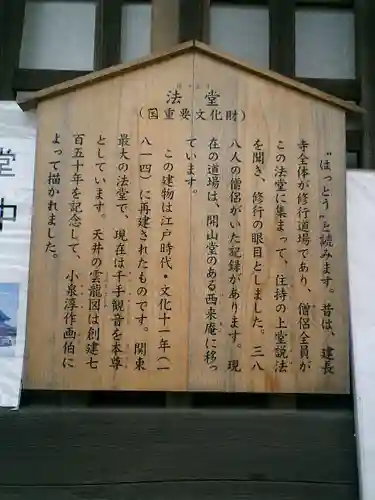 はっとう
法堂
（国重要文化財）
〝ほっとう〟と読みます。昔は、建長
寺全体が修行道場であり、僧侶全員が
この法堂に集まって、住持の上堂説法
を聞き、修行の眼目としました。三八
八人の僧侶がいた記録があります。現
在の道場は、開山堂のある西来庵に移っ
ています。
この建物は江戸時代・文化十一年（一
八一四）に再建されたものです。関東
最大の法堂で、現在は千手観音を本尊
としています。天井の雲龍図は創建七
百五十年を記念して、小泉淳作画伯に
よって描かれました。
堂
中